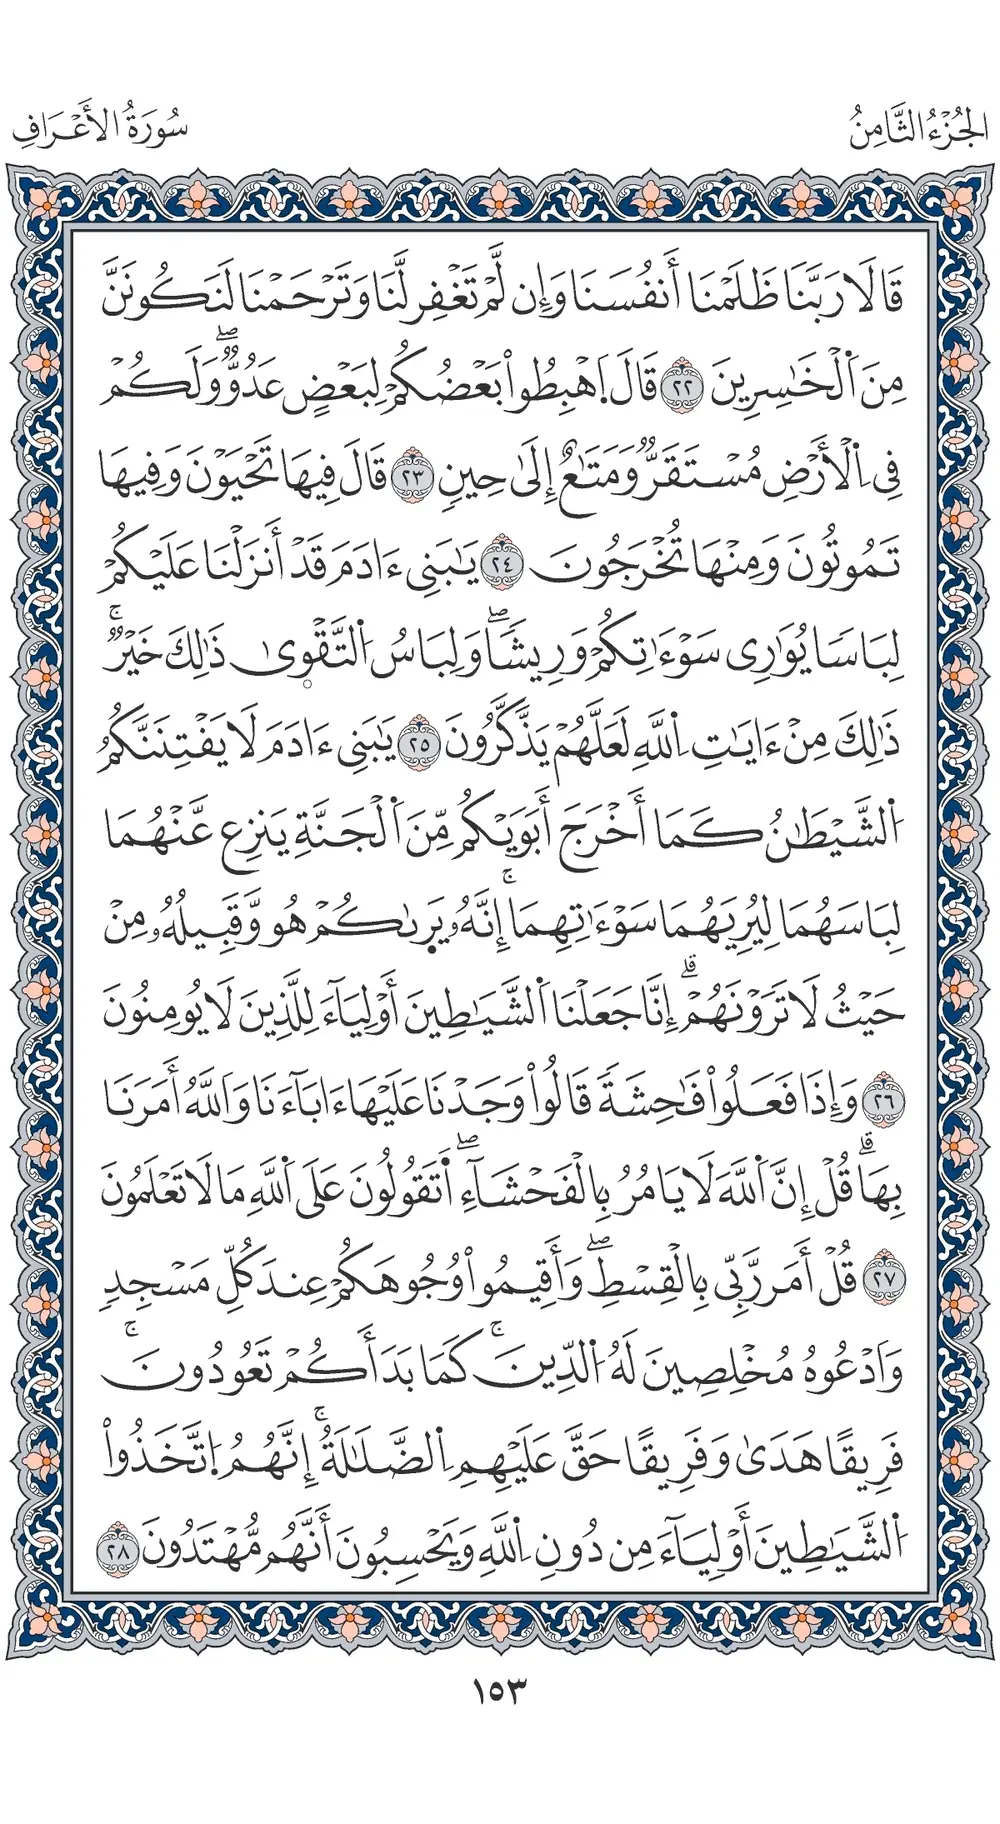 الجُزْءُ الثَّامِنُ
سُورَةُ الأَعْرَافِ
قَالَا رَبَّنَا ظَلَمْنَا أَنفُسَنَا وَإِن لَّمْ تَغْفِر لَّنَا وَتَرْحَمْنَا لَنَكُونَنَّ
مِنَ اَ۬لْخَٰسِرِينَ ٢٢ قَالَ اَ۪هْبِطُواْ بَعْضُكُمْ لِبَعْضٍ عَدُوࣱّۖ وَلَكُمْ
فِي اِ۬لْأَرْضِ مُسْتَقَرࣱّ وَمَتَٰعٌ إِلَىٰ حِينࣲ ٢٣ قَالَ فِيهَا تَحْيَوْنَ وَفِيهَا
تَمُوتُونَ وَمِنْهَا تُخْرَجُونَ ٢٤ يَٰبَنِي ءَادَمَ قَدْ أَنزَلْنَا عَلَيْكُمْ
لِبَاسࣰا يُوَٰرِي سَوْءَٰتِكُمْ وَرِيشࣰاۖ وَلِبَاسُ اُ۬لتَّقْوۭىٰ ذَٰلِكَ خَيْرࣱۚ
ذَٰلِكَ مِنْ ءَايَٰتِ اِ۬للَّهِ لَعَلَّهُمْ يَذَّكَّرُونَ ٢٥ يَٰبَنِي ءَادَمَ لَا يَفْتِنَنَّكُمُ
اُ۬لشَّيْطَٰنُ كَمَا أَخْرَجَ أَبَوَيْكُم مِّنَ اَ۬لْجَنَّةِ يَنزِع عَّنْهُمَا
لِبَاسَهُمَا لِيُرِيَهُمَا سَوْءَٰتِهِمَاۚ إِنَّهُۥ يَر۪ىٰكُمْ هُو وَّقَبِيلُهُۥ مِنْ
حَيْثُ لَا تَرَوْنَهُمْۗ إِنَّا جَعَلْنَا اَ۬لشَّيَٰطِينَ أَوْلِيَآءَ لِلَّذِينَ لَا يُومِنُونَ
٢٦ وَإِذَا فَعَلُواْ فَٰحِشَةࣰ قَالُواْ وَجَدْنَا عَلَيْهَا ءَابَآءَنَا وَاَللَّهُ أَمَرَنَا
بِهَاۗ قُلْ إِنَّ اَ۬للَّهَ لَا يَامُرُ بِالْفَحْشَآءِۖ أَتَقُولُونَ عَلَى اَ۬للَّهِ مَا لَا تَعْلَمُونَ
٢٧ قُلْ أَمَر رَّبِّي بِالْقِسْطِۖ وَأَقِيمُواْ وُجُوهَكُمْ عِندَ كُلِّ مَسْجِدࣲ
وَاَدْعُوهُ مُخْلِصِينَ لَهُ اُ۬لدِّينَۚ كَمَا بَدَأَكُمْ تَعُودُونَۚ
فَرِيقًا هَدَىٰ وَفَرِيقًا حَقَّ عَلَيْهِمِ اِ۬لضَّلَٰلَةُۚ إِنَّهُمُ اُ۪تَّخَذُواْ
اُ۬لشَّيَٰطِينَ أَوْلِيَآءَ مِن دُونِ اِ۬للَّهِ وَيَحْسِبُونَ أَنَّهُم مُّهْتَدُونَ ٢٨
١٥٣